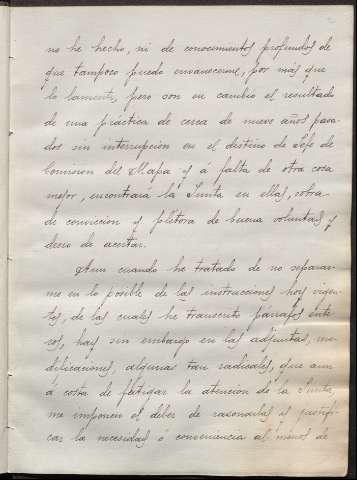 no he hecho, ni de conocimientos profundos de
que tampoco puedo envanecerme, por más que
lo lamente, pero son en cambio el resultado
de una práctica de cerca de nueve años pasa-
dos sin interrupción en el destino de Jefe de
Comision del Mapa y á falta de otra cosa
mejor, encontrará la Junta en ellas, sobra
de conviccion y plétora de buena voluntad y
deseo de acertar.
Aun cuando he tratado de no separar-
me en lo posible de las instrucciones hoy vigen-
tes, de las cuales he transcrito párrafos ente-
ros, hay sin embargo en las adjuntas, mo-
dificaciones, algunas tan radicales, que aun
á costa de fatigar la atencion de la Junta,
me imponen el deber de razonarlas y justifi-
car la necesidad o conveniencia al menos de